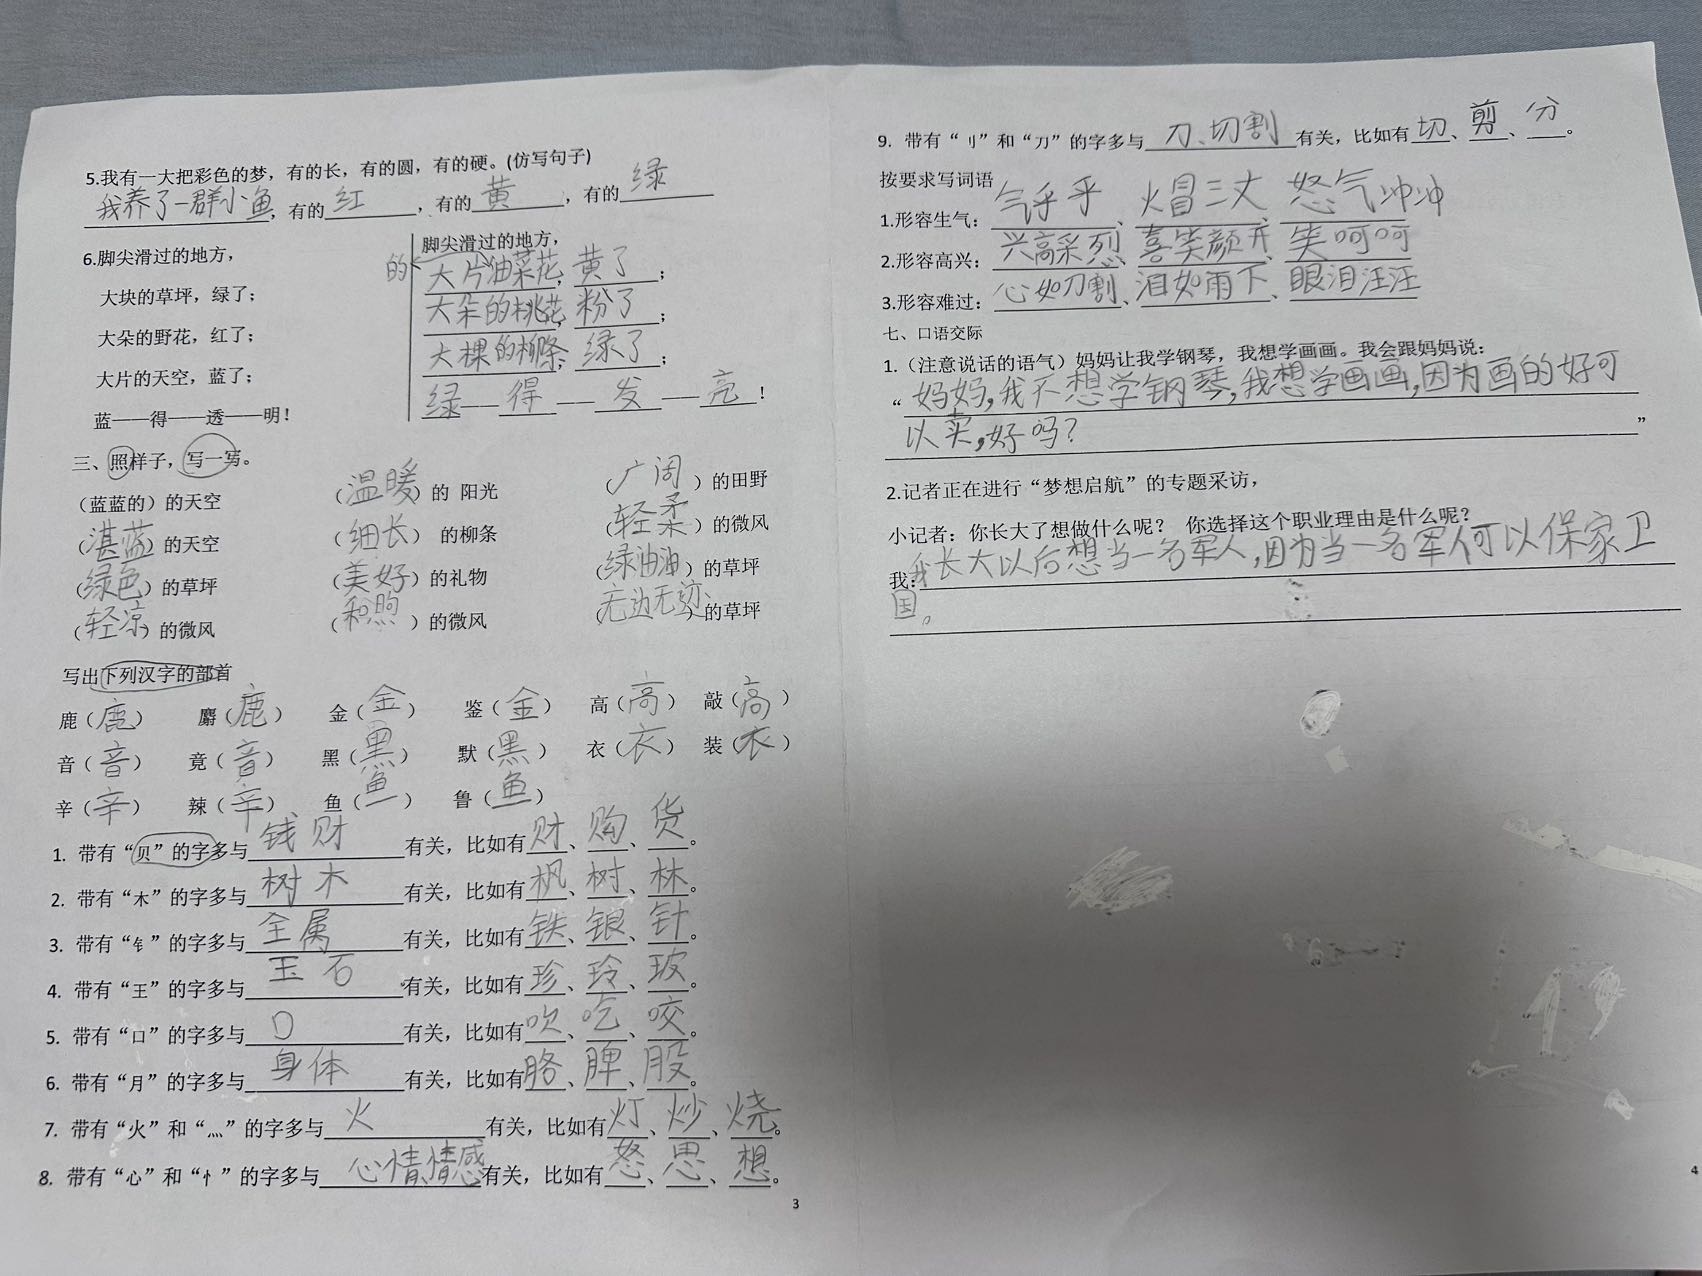 5.我有一大把彩色的梦，有的长，有的圆，有的硬。(仿写句子)
我养了一群小鱼，有的红，有的黄，有的绿
6.脚尖滑过的地方，
大块的草坪，绿了；
大朵的野花，红了；
大片的天空，蓝了；
蓝——得——透——明！
脚尖滑过的地方，
的
大片油菜花，黄了；
大朵的桃花，粉了；
大棵的柳条，绿了；
绿——得——发——亮！
三、照样子，写一写。
(蓝蓝的)的天空 (温暖)的 阳光 (广阔)的田野
(湛蓝)的天空 (细长)的柳条 (轻柔)的微风
(绿色)的草坪 (美好)的礼物 (绿油油)的草坪
(轻凉)的微风 (和煦)的微风 (无边无迹)的草坪
写出下列汉字的部首
鹿(鹿) 麝(鹿) 金(金) 鉴(金) 高(高) 敲(高)
音(音) 竟(音) 黑(黑) 默(黑) 衣(衣) 装(衣)
辛(辛) 辣(辛) 鱼(鱼) 鲁(鱼)
1. 带有“贝”的字多与钱财有关，比如有财、购、货。
2. 带有“木”的字多与树木有关，比如有枫、树、林。
3. 带有“钅”的字多与金属有关，比如有铁、银、针。
4. 带有“王”的字多与玉石有关，比如有珍、玲、玻。
5. 带有“口”的字多与口有关，比如有吹、吃、咬。
6. 带有“月”的字多与身体有关，比如有胳、脾、股。
7. 带有“火”和“灬”的字多与火有关，比如有灯、炒、烧。
8. 带有“心”和“忄”的字多与心情、情感有关，比如有怒、思、想。
3
9. 带有“刂”和“刀”的字多与刀、切割有关，比如有切、剪、分。
按要求写词语
1.形容生气：气乎乎、火冒三丈、怒气冲冲
2.形容高兴：兴高采烈、喜笑颜开、笑呵呵
3.形容难过：心如刀割、泪如雨下、眼泪汪汪
七、口语交际
1.（注意说话的语气）妈妈让我学钢琴，我想学画画。我会跟妈妈说：
“妈妈，我不想学钢琴，我想学画画，因为画的好可
以卖，好吗？”
2.记者正在进行“梦想启航”的专题采访，
小记者：你长大了想做什么呢？ 你选择这个职业理由是什么呢？
我：我长大以后想当一名军人，因为当一名军人可以保家卫
国。
4